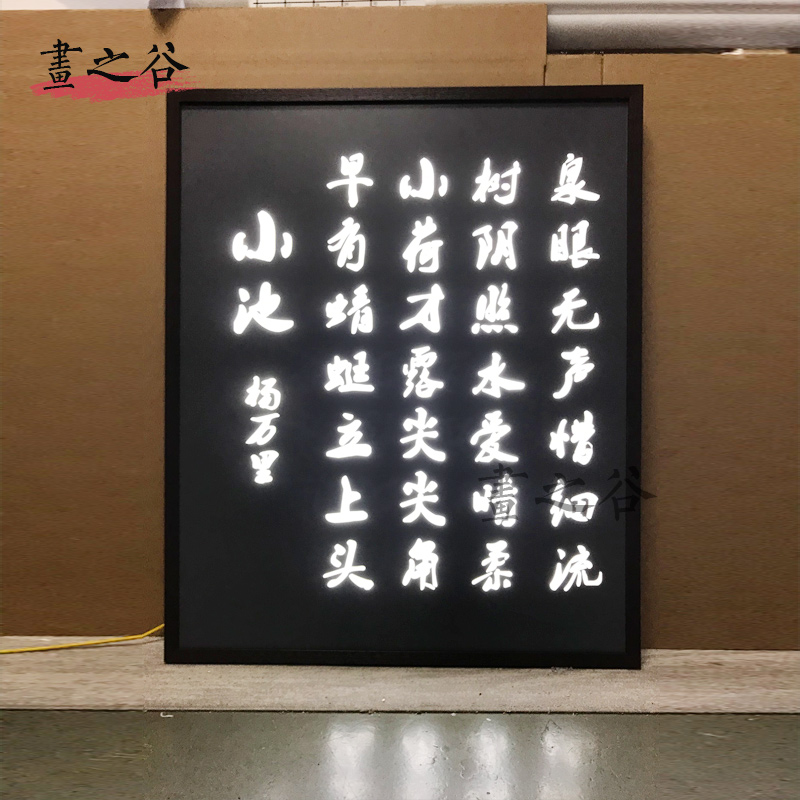 畫之谷
泉眼无声惜细流
树阴照水爱晴柔
小荷才露尖尖角
早有蜻蜓立上头
小池
杨万里
畫之谷